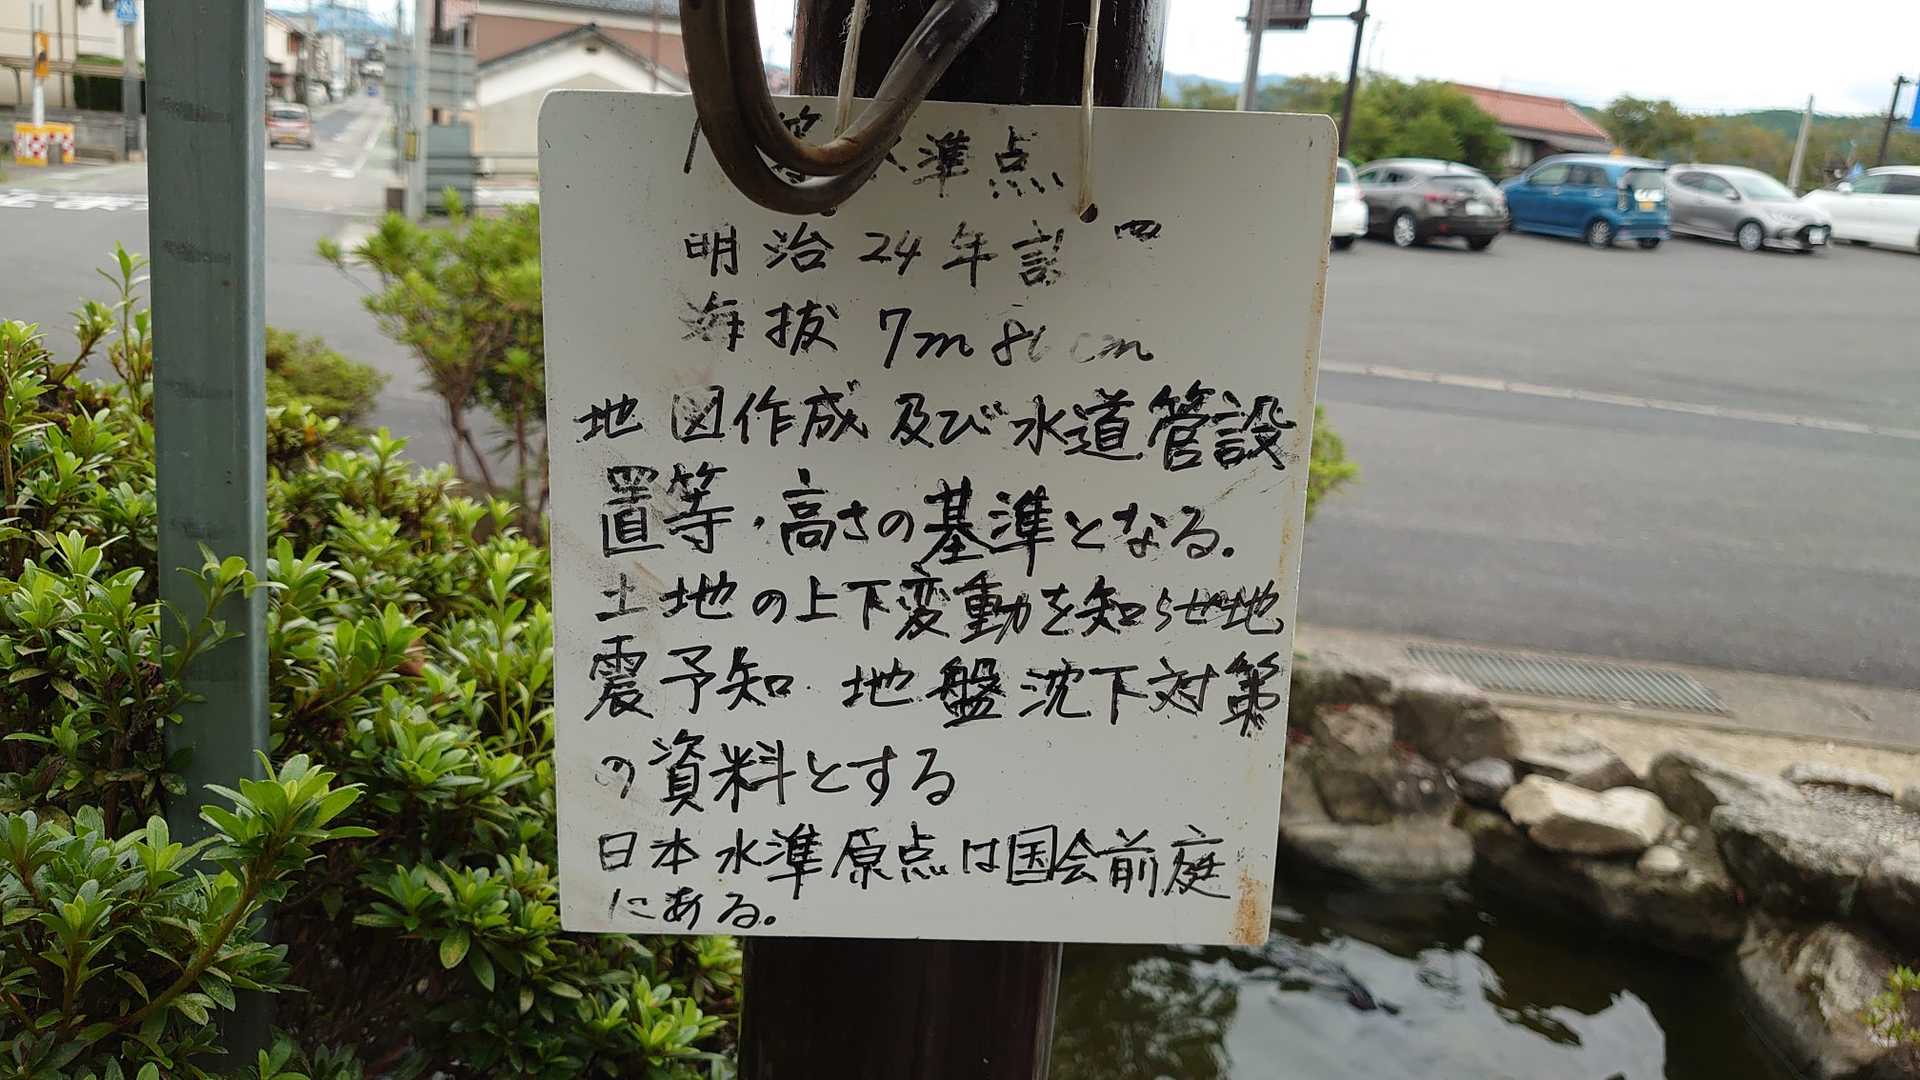 水準点
明治24年設
海抜 7m cm
地図作成及び水道管設
置等・高さの基準となる。
土地の上下変動を知らせ地
震予知 地盤沈下対策
の資料とする
日本水準原点は国会前庭
にある。